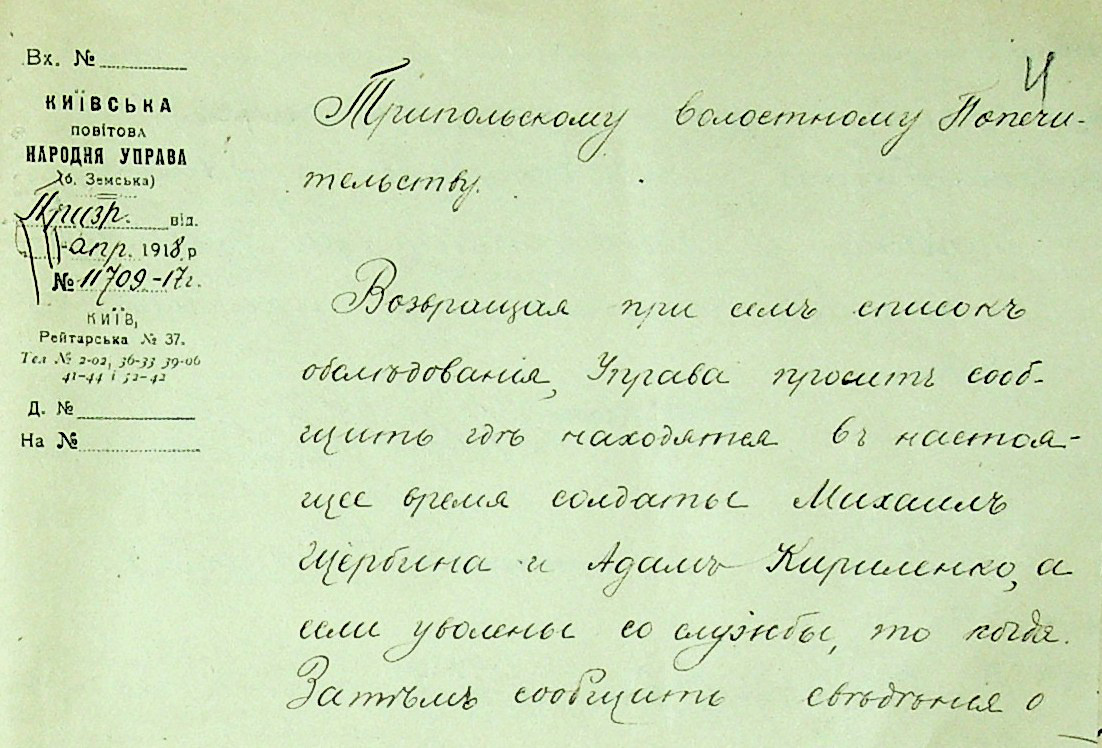 Вх. №
КИЇВСЬКА
ПОВІТОВА
НАРОДНЯ УПРАВА
(б. Земська)
Призр. від.
апр. 1918 р
№ 11709-17г.
КИЇВ,
Рейтарська № 37.
Тел № 2-02, 36-33 39-06
41-44 і 52-42
Д. №
На №
4
Трипольскому волостному Попечи-
тельству.
Возвращая при семъ списокъ
обслѣдованія, Управа проситъ сооб-
щить гдѣ находятся въ настоя-
щее время солдаты Михаилъ
Щербина и Адамъ Кириленко, а
если уволены со службы, то когда.
Затѣмъ сообщить свѣдѣнія о